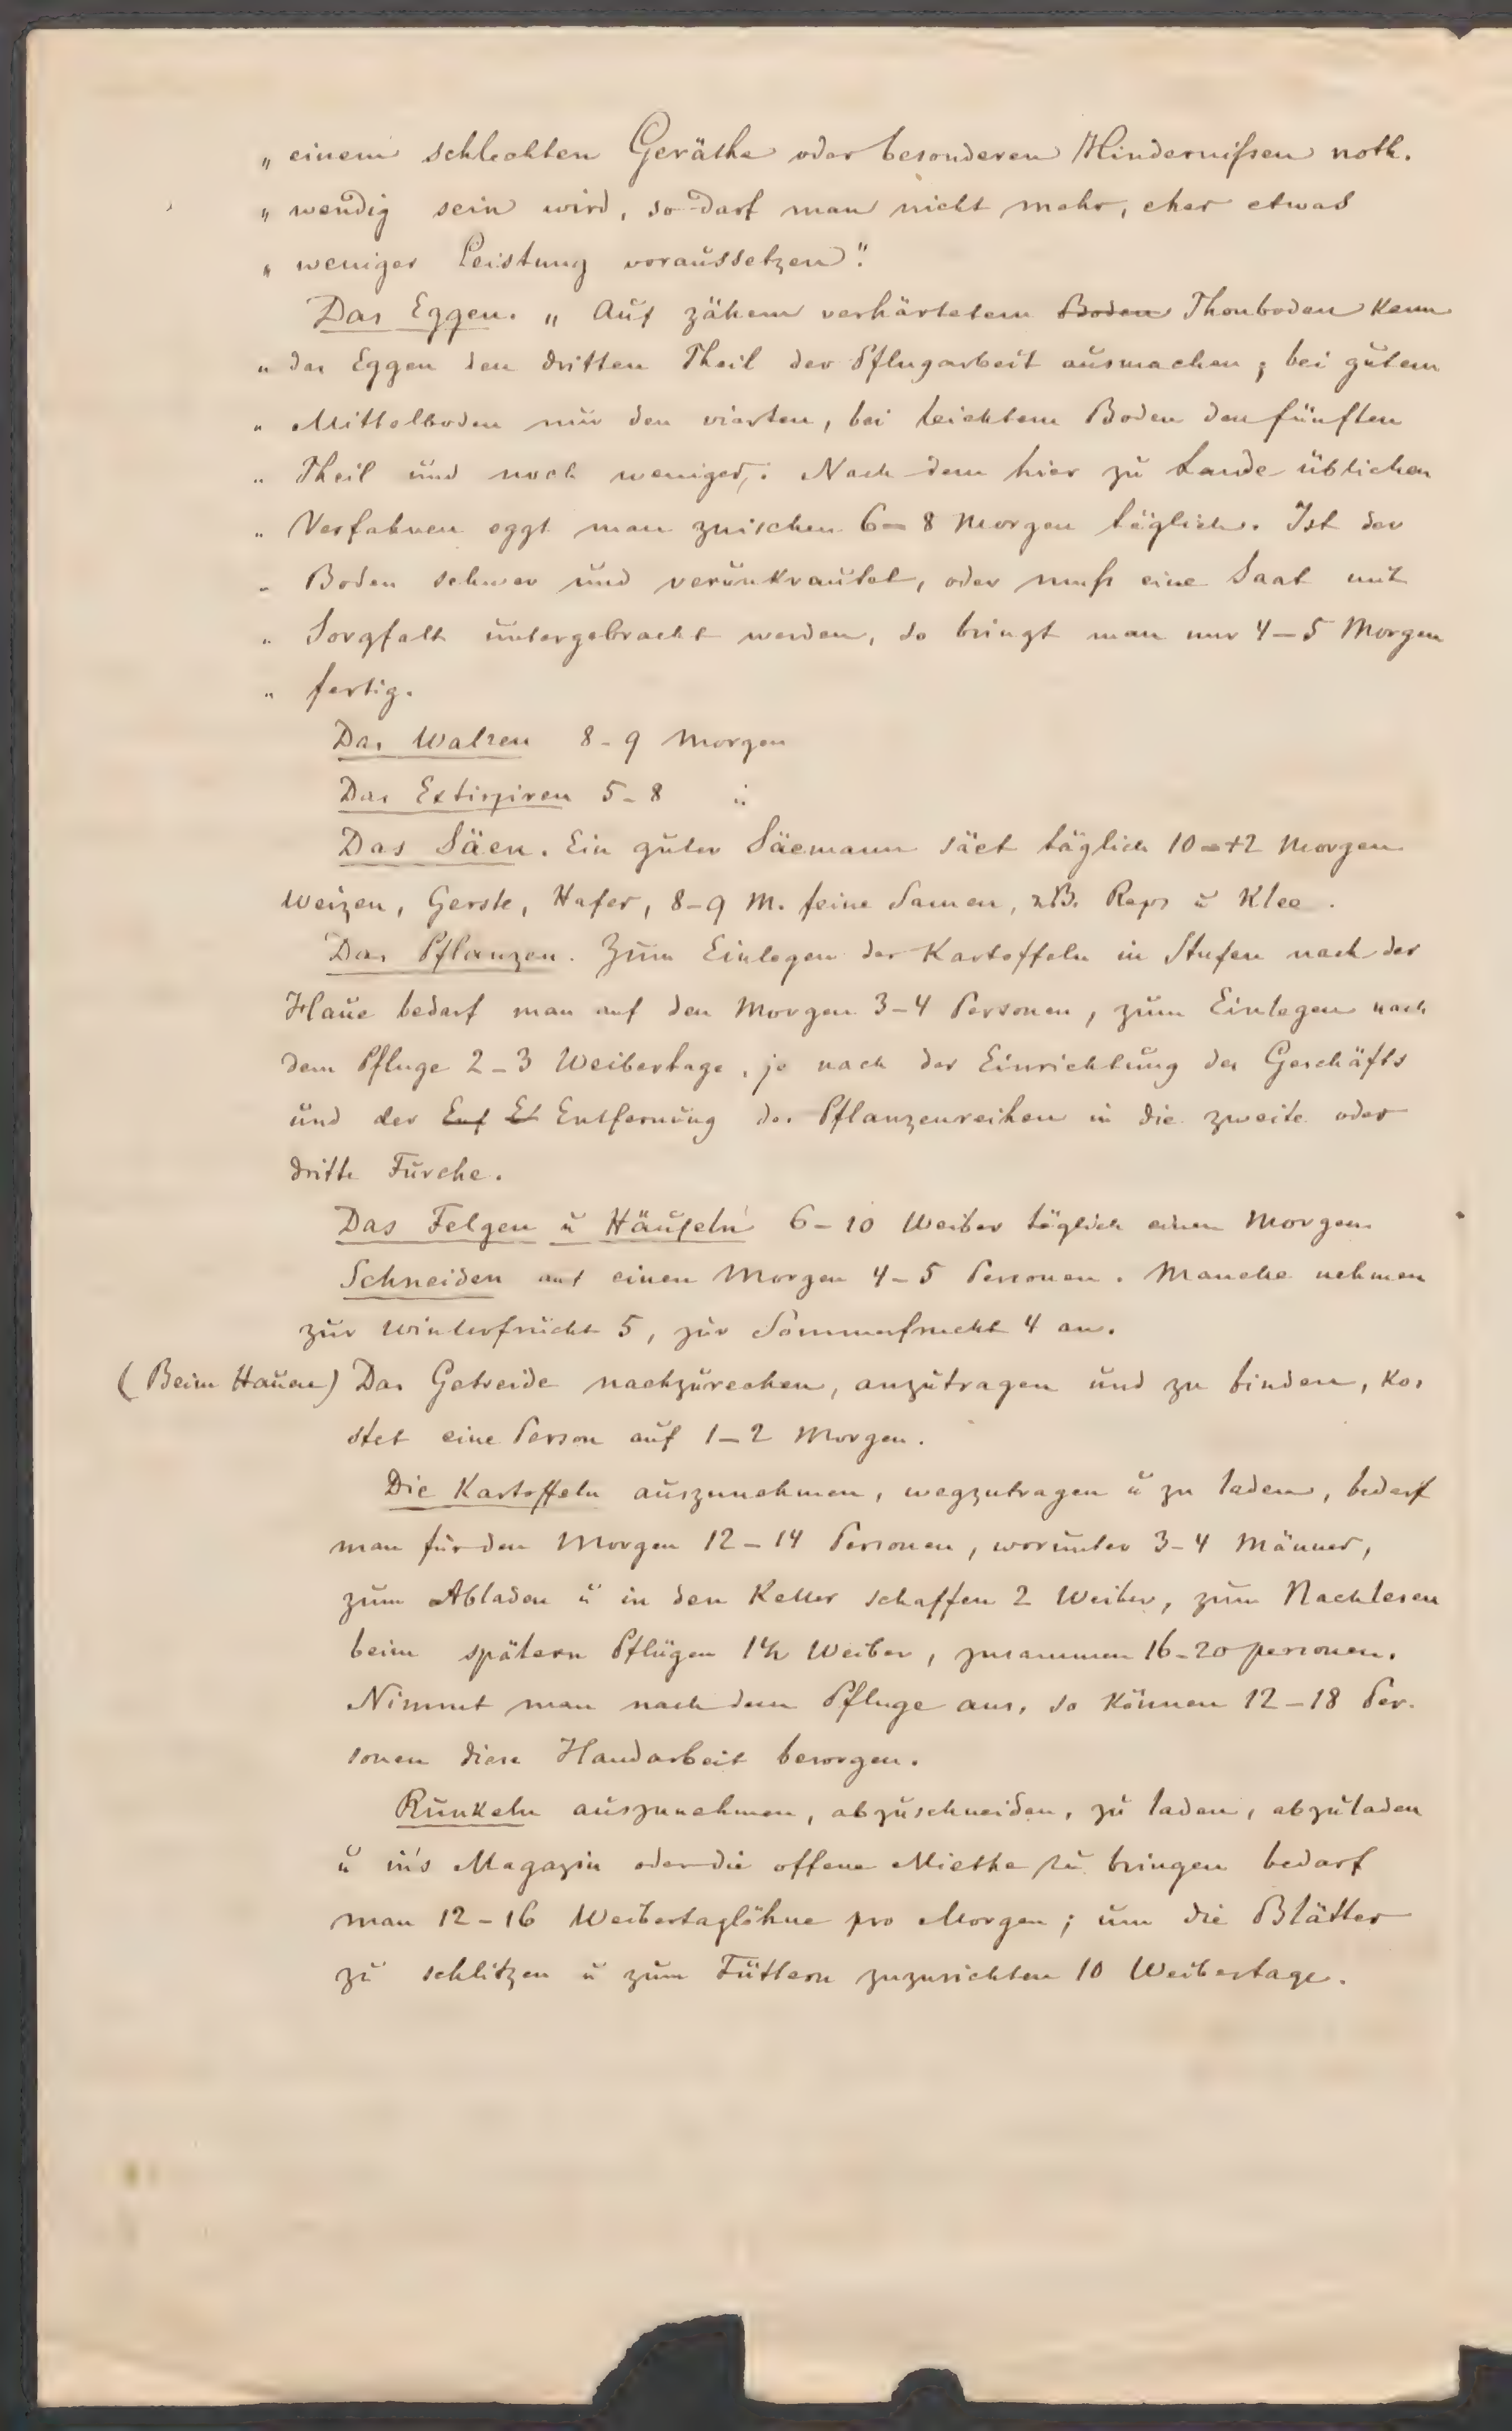 „ einem schlechten Geräthe oder besonderen Hindernißen noth.
„ wendig sein wird, so darf man nicht mehr, eher etwas
„ weniger Leistung voraussetzen".
Das Eggen. „ Auf zähem verhärtetem Boden Thonboden kann
„ das Eggen den dritten Theil der Pflugarbeit ausmachen; bei gutem
„ Mittelboden nur den vierten, bei leichtem Boden den fünften
„ Theil und noch weniger. Nach dem hier zu Lande üblichen
„ Verfahren eggt man zwischen 6–8 Morgen täglich. Ist der
„ Boden schwer und verunkrautet, oder muß eine Saat mit
„ Sorgfalt untergebracht werden, so bringt man nur 4–5 Morgen
„ fertig.
Das Walzen 8–9 Morgen
Das Extirpiren 5–8 "
Das Säen. Ein guter Säemann säet täglich 10–12 Morgen
Weizen, Gerste, Hafer, 8–9 M. feine Samen, z.B. Reps u Klee.
Das Pflanzen. Zum Einlegen der Kartoffeln in Stufen nach der
Haue bedarf man auf den Morgen 3–4 Personen, zum Einlegen nach
dem Pfluge 2–3 Weibertage, je nach der Einrichtung des Geschäfts
und der Enf Et Entfernung der Pflanzenreihen in die zweite oder
dritte Furche.
Das Felgen u Häufeln 6–10 Weiber täglich einen Morgen.
Schneiden auf einen Morgen 4–5 Personen. Manche nehmen
zur Winterfrucht 5, zur Sommerfrucht 4 an.
(Beim Hauen) Das Getreide nachzurechen, anzutragen und zu binden, kos
stet eine Person auf 1–2 Morgen.
Die Kartoffeln auszunehmen, wegzutragen u zu laden, bedarf
man für den Morgen 12–14 Personen, worunter 3–4 Männer,
zum Abladen u in den Keller schaffen 2 Weiber, zum Nachlesen
beim spätern Pflügen 1½ Weiber, zusammen 16–20 personen.
Nimmt man nach dem Pfluge aus, so können 12–18 Per-
sonen diese Handarbeit besorgen.
Runkeln auszunehmen, abzuschneiden, zu laden, abzuladen
u in's Magazin oder die offene Miethe zu bringen bedarf
man 12–16 Weibertaglöhne pro Morgen; um die Blätter
zu schlitzen u zum Füttern zuzurichten 10 Weibertage.